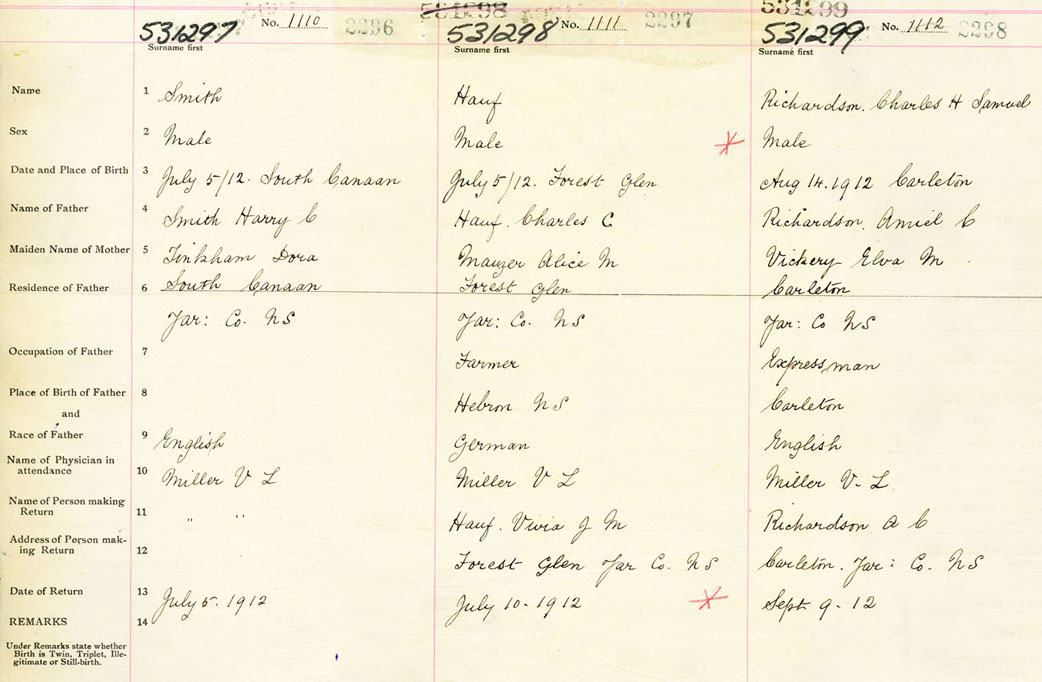 531297 No. 1110 2296
531298 No. 1111 2297
531299 No. 1112 2298
Surname first Surname first Surname first
Name 1 Smith Hauf Richardson. Charles H Samuel
Sex 2 Male Male Male
Date and Place of Birth 3 July 5/12. South Canaan July 5/12. Forest Glen Aug 14. 1912 Carleton
Name of Father 4 Smith Harry C Hauf. Charles C Richardson. Amiel C
Maiden Name of Mother 5 Tinkham Dora Mauzer Alice M Vickery Elva M
Residence of Father 6 South Canaan Forest Glen Carleton
Yar: Co. NS Yar: Co. NS Yar: Co NS
Occupation of Father 7 Farmer Expressman
Place of Birth of Father 8 Hebron NS Carleton
and
Race of Father 9 English German English
Name of Physician in
attendance 10 Miller V L Miller V L Miller V. L.
Name of Person making
Return 11 " " Hauf. J M Richardson A C
Address of Person mak-
ing Return 12 Forest Glen Yar Co. NS Carleton. Yar: Co. NS
Date of Return 13 July 5. 1912 July 10-1912 Sept 9-12
REMARKS 14
Under Remarks state whether
Birth is Twin, Triplet, Ille-
gitimate or Still-birth.